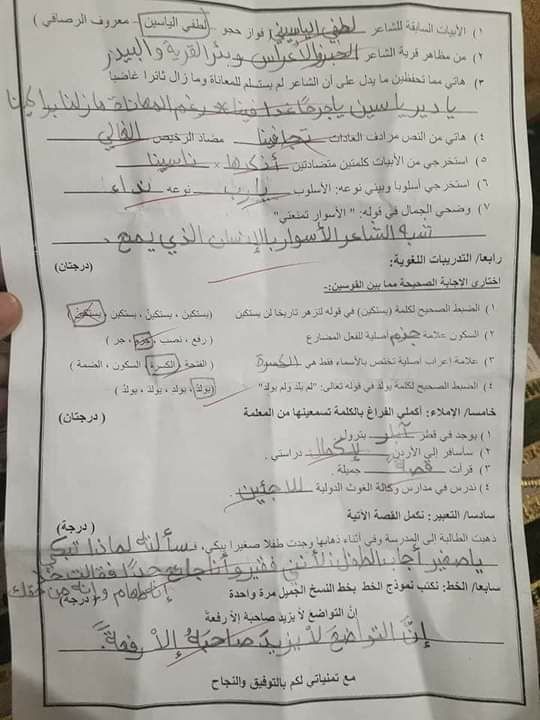 ١) الأبيات السابقة للشاعر لطفي الياسيني ( فواز حجو - لطفي الياسين - معروف الرصافي )
٢) من مظاهر قرية الشاعر الخبز والأعراس وبئر القرية والبيدر
٣) هاتي مما تحفظين ما يدل على أن الشاعر لم يستسلم للمعاناة وما زال ثائرا غاضبا
يا دير ياسين يا جرحا غدا فينا * رغم المعاناة ما زلنا براكينا
٤) هاتي من النص مرادف العادات مضاد الرخيص الغالي
٥) استخرجي من الأبيات كلمتين متضادتين أذكرها × ناسينا
٦) استخرجي أسلوبا وبيني نوعه: الأسلوب يا رب نوعه نداء
٧) وضحي الجمال في قوله: " الأسوار تمنعني"
شبه الشاعر الأسوار بالإنسان الذي يمنع .
رابعا/ التدريبات اللغوية: (درجتان)
اختاري الاجابة الصحيحة مما بين القوسين:-
١) الضبط الصحيح لكلمة (يستكين) في قوله لتزهر تاريخا لن يستكين (يستكين ، يستكين ، يستكين ، يستكين)
٢) السكون علامة جزم أصلية للفعل المضارع ( رفع ، نصب ، جزم ، جر )
٣) علامة إعراب أصلية تختص بالأسماء فقط هي الكسرة ( الفتحة ، الكسرة ، السكون ، الضمة )
٤) الضبط الصحيح لكلمة يولد في قوله تعالى: "لم يلد ولم يولد" ( يولد ، يولد ، يولد ، يولد )
خامسا/ الإملاء: أكملي الفراغ بالكلمة تسمعينها من المعلمة (درجتان)
١) يوجد في قطر آبار بترول.
٢) سأسافر إلى الأردن لإكمال دراستي .
٣) قرأت قصة جميلة .
٤) ندرس في مدارس وكالة الغوث الدولية للاجئين .
سادسا/ التعبير: نكمل القصة الآتية (درجة )
ذهبت الطالبة الى المدرسة وفي أثناء ذهابها وجدت طفلا صغيرا يبكي، فسألته لماذا تبكي
يا صغير أجاب الطفل لأنني فقير وأنا جائع جدا فقالت خذ
سابعا/ الخط: نكتب نموذج الخط بخط النسخ الجميل مرة واحدة
(درجة)
إن التواضع لا يزيد صاحبة إلا رفعة
إنَّ التواضع لا يزيد صاحبه إلا رفعة.
مع تمنياتي لكم بالتوفيق والنجاح